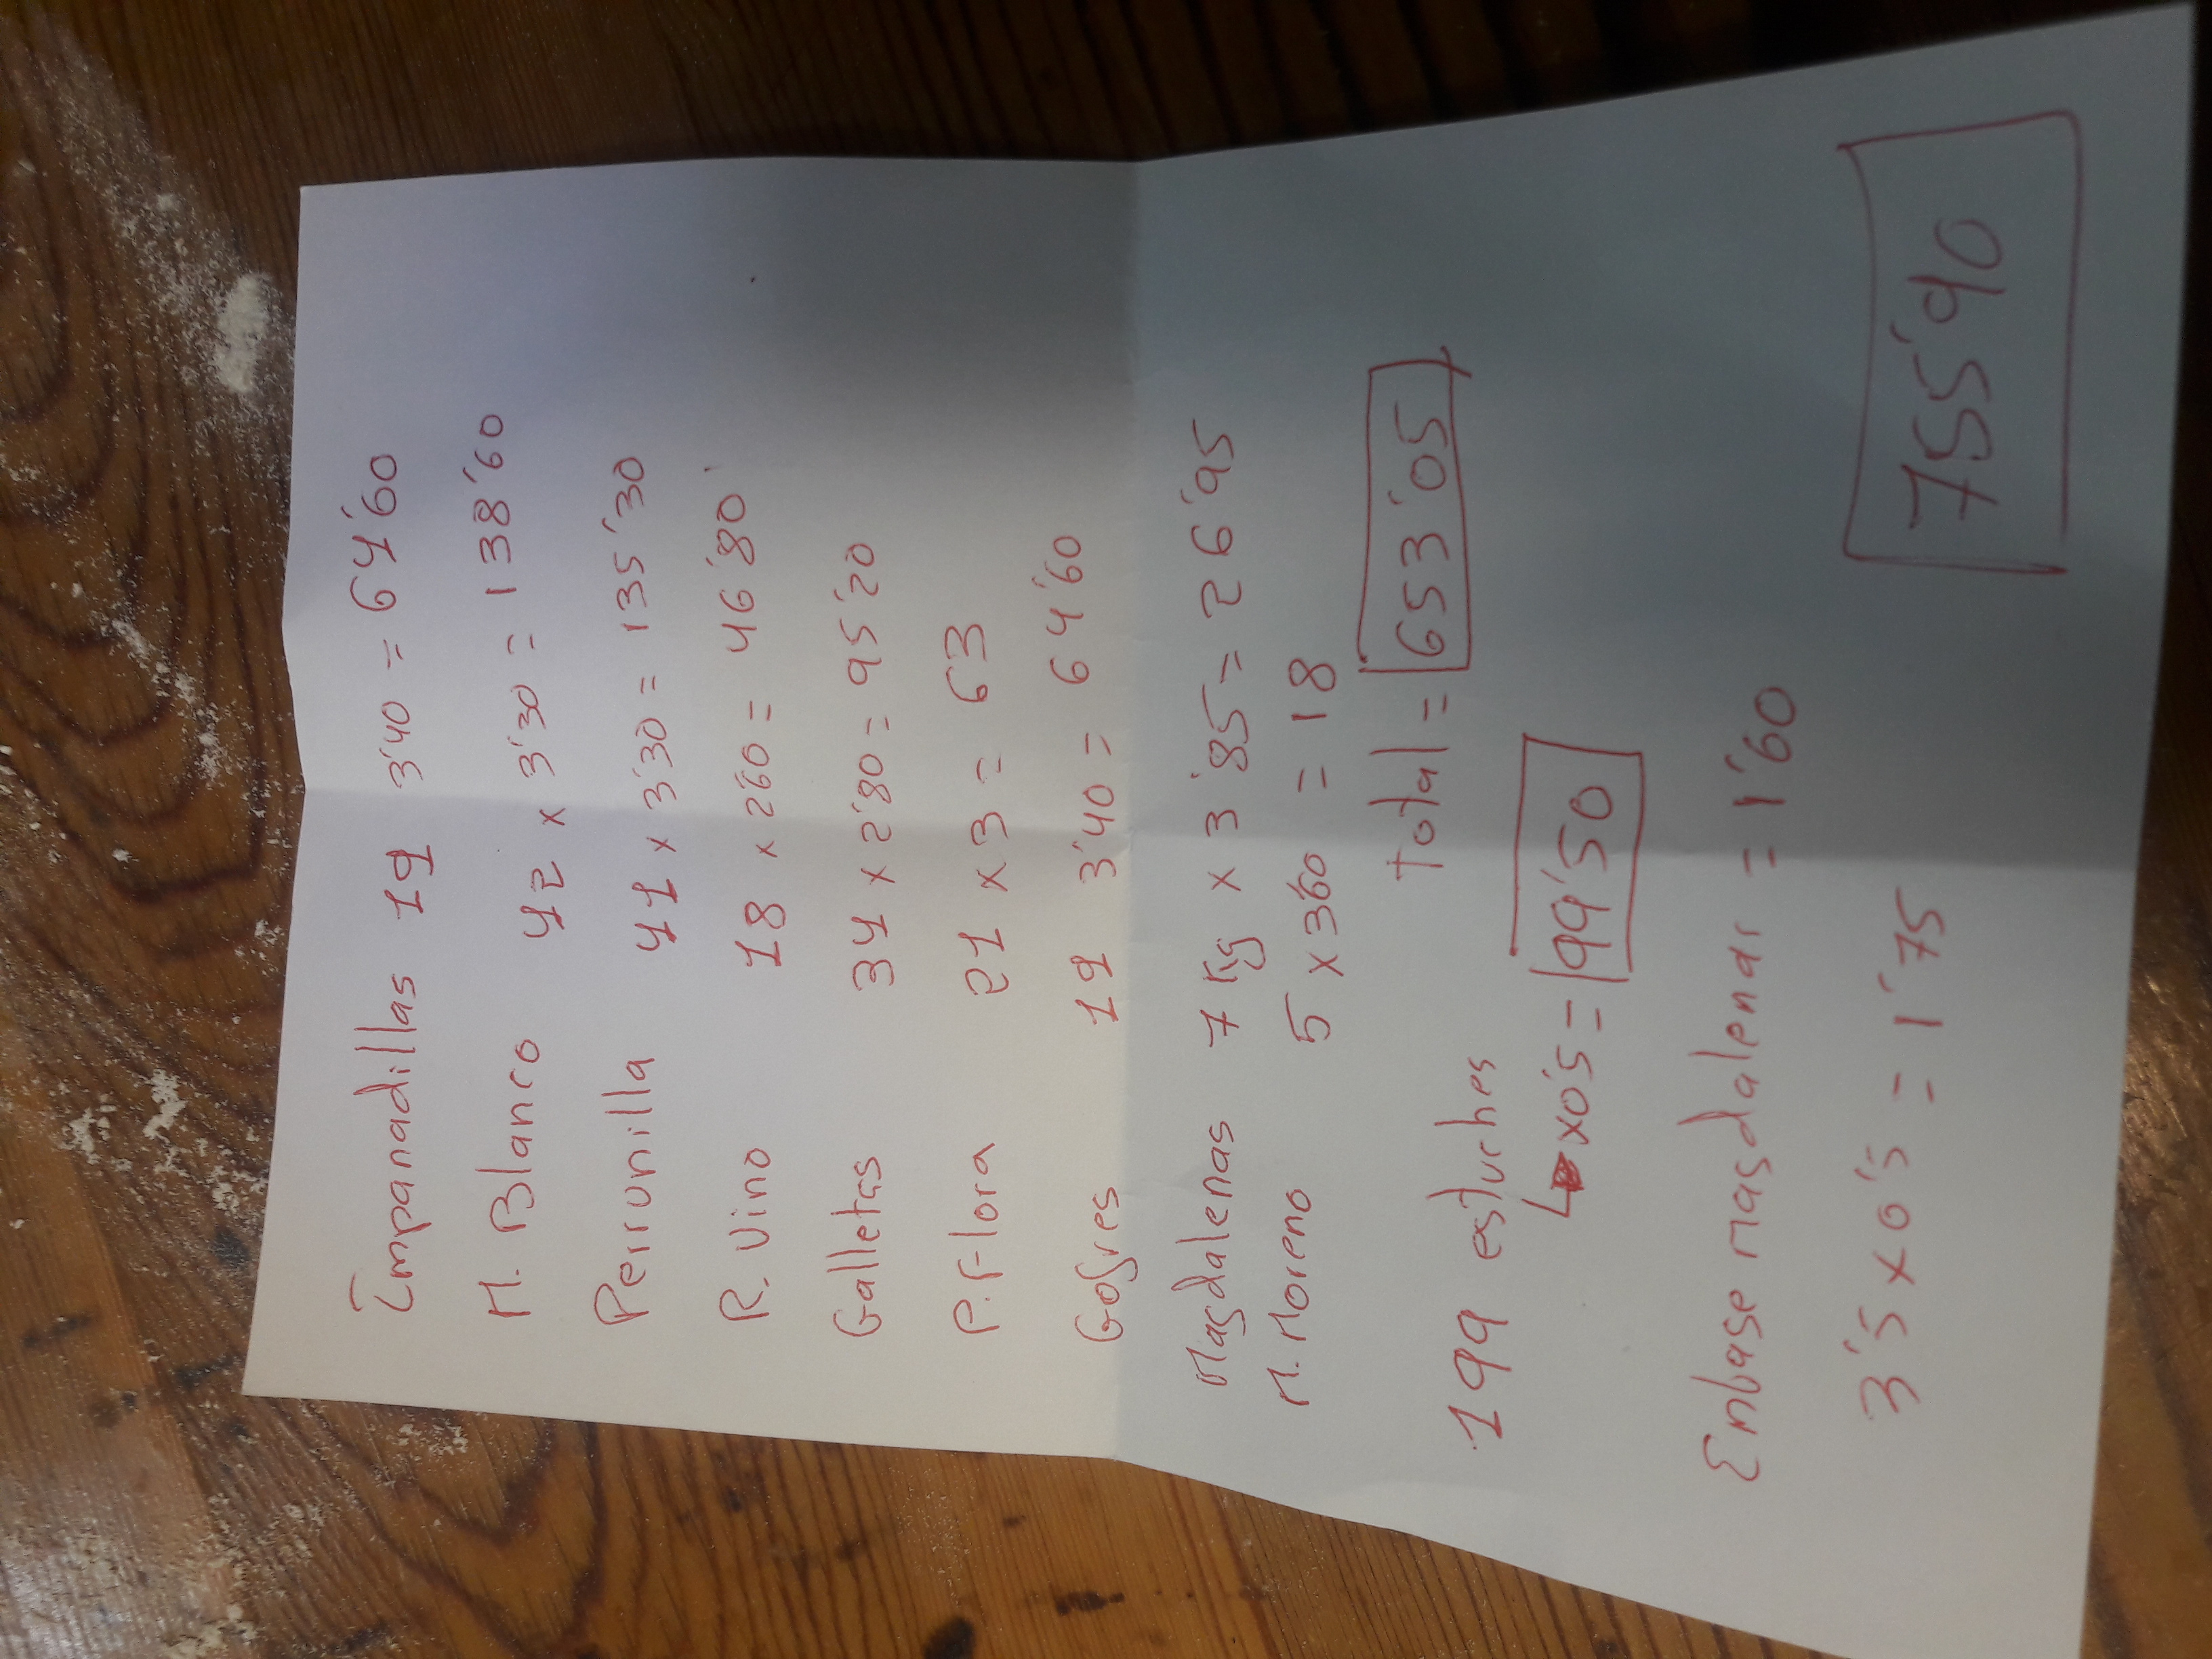 Empanadillas 19 3'40 = 64'60
M. Blanco 42 x 3'30 = 138'60
Perrunilla 41 x 3'30 = 135'30
R. Vino 18 x 2'60 = 46'80
Galletas 34 x 2'80 = 95'20
P. Flora 21 x 3 = 63
Gofres 19 3'40 = 64'60
Magdalenas 7 kg x 3'85 = 26'95
M. Moreno 5 x 3'60 = 18
total = 653'05
199 estuches
x0'5 = 99'50
Embase magdalenas = 1'60
3'5 x 0'5 = 1'75
755'90